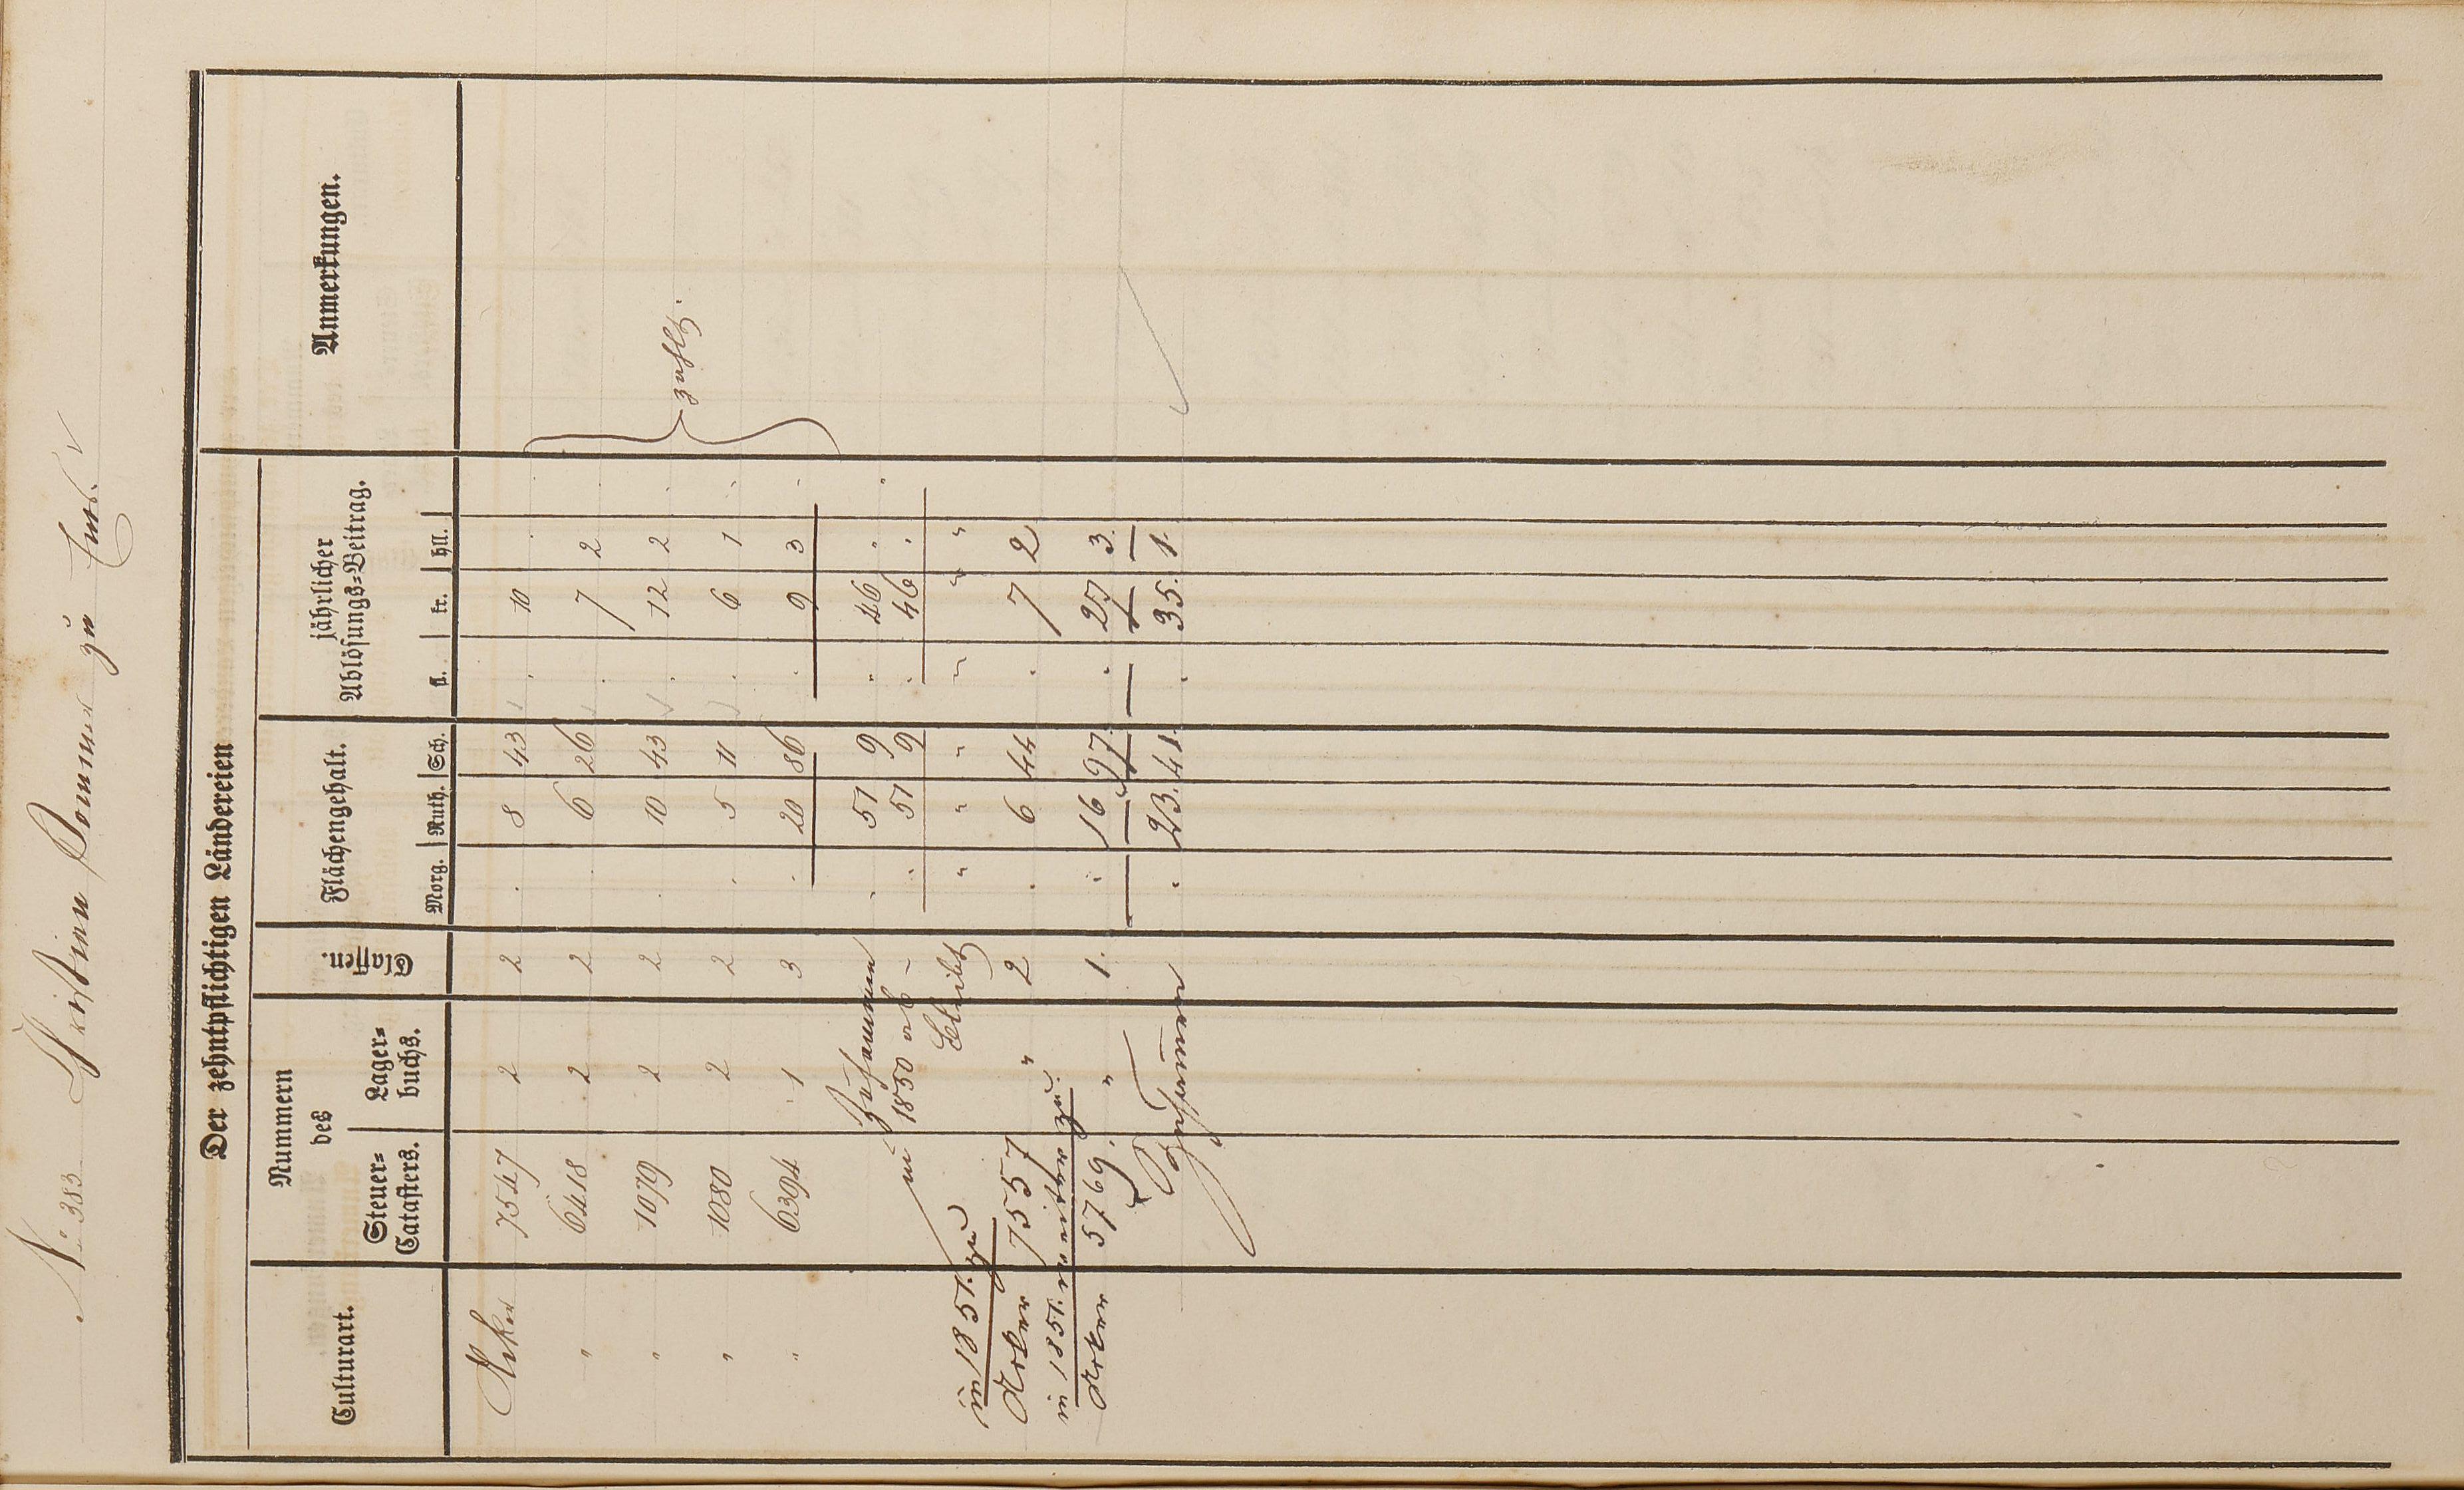 No 383 Christian Pommer zu Ems.
Der zehntpflichtigen Ländereien
Culturart.
Nummern
des
Steuer=
Catasters.
Lager=
buchs.
Classen.
Flächengehalt.
Morg. Ruth. Sch.
jährlicher
Ablösungs=Beitrag.
fl. kr. hll.
Anmerkungen.
Acker 7547 2 2 . 8 43 . 10 .
" 6418 2 2 . 6 26 . 7 2
" 1079 2 2 . 10 43 . 12 2
" 1080 2 2 . 5 11 . 6 1
" 6394 1 3 . 20 86 . 9 3
Zusammen . 51 9 . 46 .
in 1850 ab . 51 9 . 46 .
bleibt " " " " " "
in 1851. zu
Acker 7557 " 2 . 6 44 . 7 2
in 1851. weiter zu.
Acker 5769. " 1. . 16 97. . 27 3.
Zusammen . 23. 41. . 35. 1.